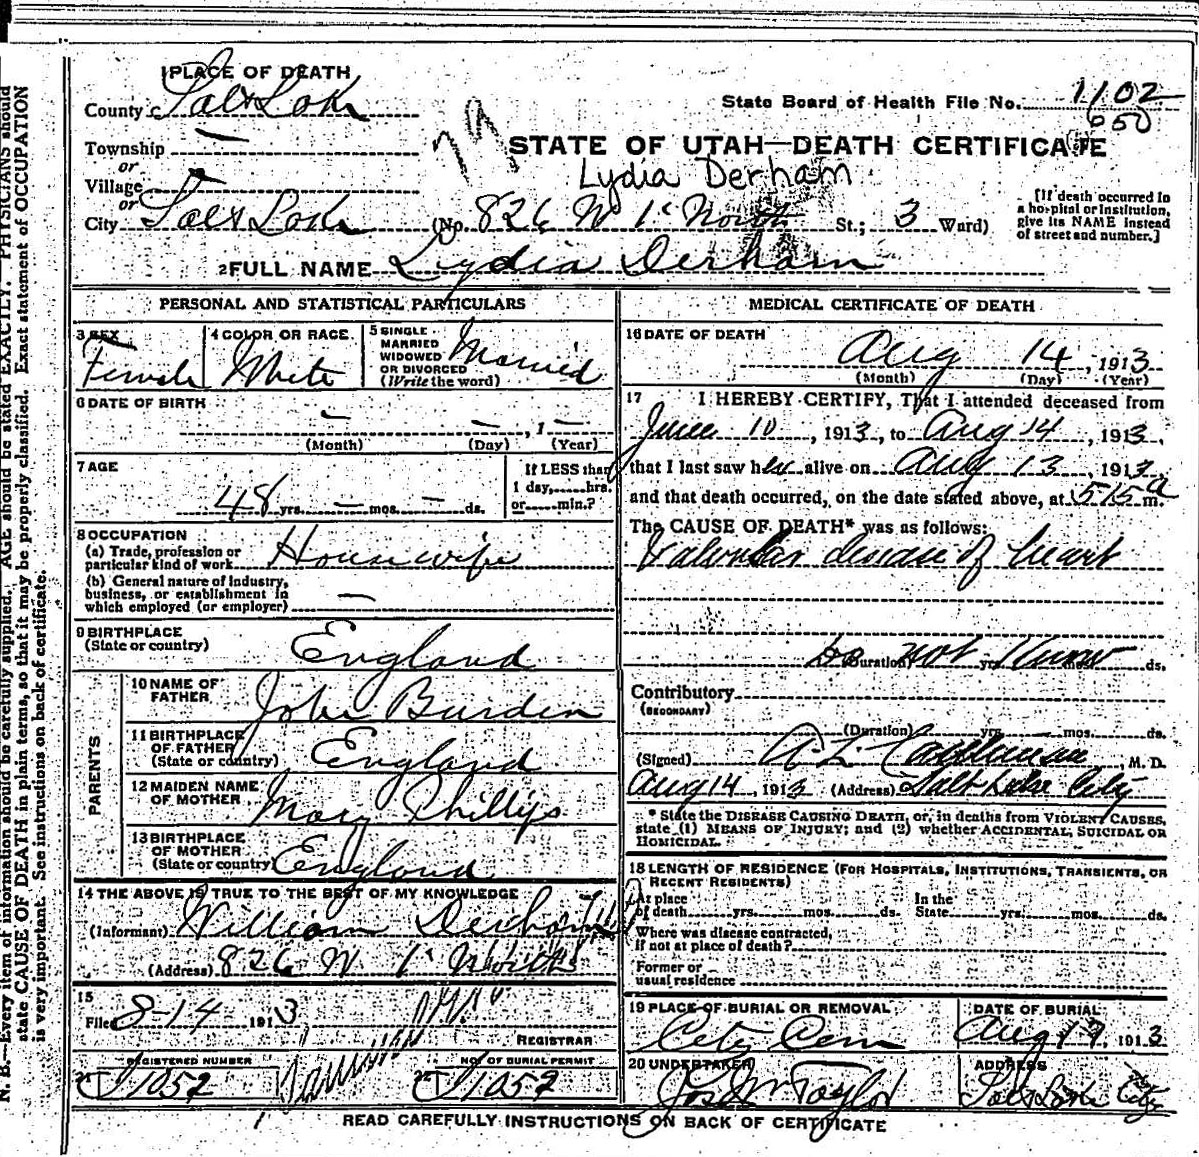 1 PLACE OF DEATH
County Salt Lake
Township —
or
Village
or
City Salt Lake
State Board of Health File No. 1102
650
STATE OF UTAH—DEATH CERTIFICATE
Lydia Derham
(No. 826 W 1st North St.; 3 Ward)
[If death occurred in
a hospital or institution,
give its NAME instead
of street and number.]
2 FULL NAME Lydia Derham
PERSONAL AND STATISTICAL PARTICULARS
3 SEX
Female
4 COLOR OR RACE
White
5 SINGLE
MARRIED
WIDOWED
OR DIVORCED
(Write the word)
Married
6 DATE OF BIRTH
— — , 1 —
(Month) (Day) (Year)
7 AGE
48 yrs. — mos. — ds.
If LESS than
1 day, hrs.
or min.?
8 OCCUPATION
(a) Trade, profession or
particular kind of work Housewife
(b) General nature of industry,
business, or establishment in
which employed (or employer) —
9 BIRTHPLACE
(State or country) England
PARENTS
10 NAME OF
FATHER John Burden
11 BIRTHPLACE
OF FATHER
(State or country) England
12 MAIDEN NAME
OF MOTHER Mary Phillips
13 BIRTHPLACE
OF MOTHER
(State or country) England
14 THE ABOVE IS TRUE TO THE BEST OF MY KNOWLEDGE
(Informant) William Derham
(Address) 826 W 1st North
15
Filed 8-14 1913
REGISTRAR
REGISTERED NUMBER
1052
NO. OF BURIAL PERMIT
1052
MEDICAL CERTIFICATE OF DEATH
16 DATE OF DEATH
Aug 14, 1913
(Month) (Day) (Year)
17 I HEREBY CERTIFY, That I attended deceased from
June 10, 1913, to Aug 14, 1913,
that I last saw her alive on Aug 13, 1913
and that death occurred, on the date stated above, at 515 a m.
The CAUSE OF DEATH* was as follows:
Valvular disease of heart
(Duration) do not know yrs. mos. ds.
Contributory
(SECONDARY)
(Duration) yrs. mos. ds.
(Signed) A. L. , M. D.
Aug 14, 1913 (Address) Salt Lake City
* State the DISEASE CAUSING DEATH, or, in deaths from VIOLENT CAUSES,
state (1) MEANS OF INJURY; and (2) whether ACCIDENTAL, SUICIDAL OR
HOMICIDAL.
18 LENGTH OF RESIDENCE (FOR HOSPITALS, INSTITUTIONS, TRANSIENTS, OR
RECENT RESIDENTS)
At place
of death yrs. mos. ds.
In the
State yrs. mos. ds.
Where was disease contracted,
if not at place of death?
Former or
usual residence
19 PLACE OF BURIAL OR REMOVAL
City Cem
DATE OF BURIAL
Aug 17, 1913
20 UNDERTAKER
Jos Wm Taylor
ADDRESS
Salt Lake City
READ CAREFULLY INSTRUCTIONS ON BACK OF CERTIFICATE
N. B.—Every item of information should be carefully supplied. AGE should be stated EXACTLY. PHYSICIANS should
state CAUSE OF DEATH in plain terms, so that it may be properly classified. Exact statement of OCCUPATION
is very important. See instructions on back of certificate.